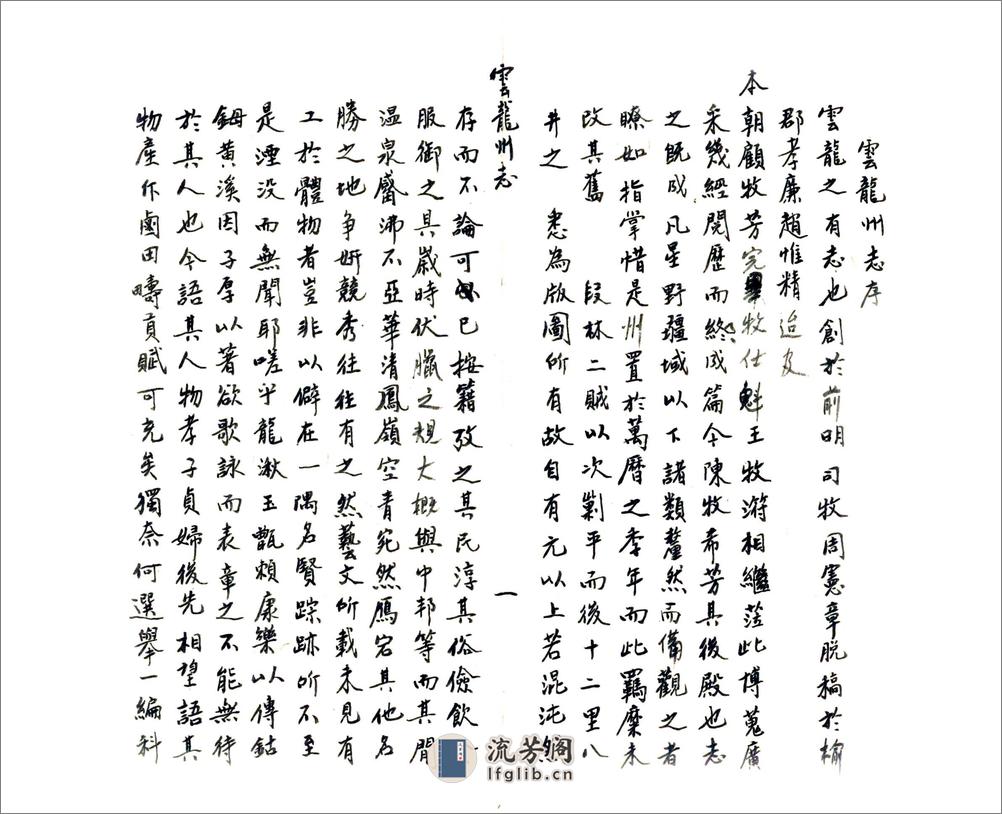 雲龍州志序
雲龍之有志也創於前明司牧周憲章脱稿於榆
郡孝廉趙惟精迨及
本朝顧牧芳宗牧仕魁王牧㳺相繼蒞此博蒐廣
采幾經閱歷而終成篇今陳牧希芳其後殿也志
之既成凡星野疆域以下諸類釐然而備觀之者
瞭如指掌惜是州置於萬曆之季年而此羈縻未
改其舊 段林二賊以次剿平而後十二里八
井之 悉為版圖所有故自有元以上若混沌然
雲龍州志
一
存而不論可已按籍攷之其民淳其俗儉飲
服御之具歲時伏臘之規大概與中邦等而其間
温泉觱沸不亞華清鳳嶺空青宛然鴈宕其他名
勝之地争妍競秀往往有之然藝文所載未見有
工於體物者豈非以僻在一隅名賢踪跡所不至
是湮没而無聞耶嗟乎龍湫玉甑賴康樂以傳鈷
鉧黄溪因子厚以著欲歌詠而表章之不能無待
於其人也今語其人物孝子貞婦後先相望語其
物産斥鹵田疇貢賦可充矣獨奈何選舉一編科
流芳阁
lfglib.cn